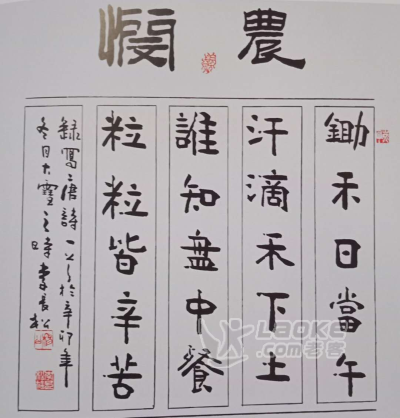 憫農
鋤禾日當午
汗滴禾下土
誰知盘中餐
粒粒皆辛苦
錄寫唐詩一首於辛卯年
冬日大雪之時李長松
LAOKE
.com